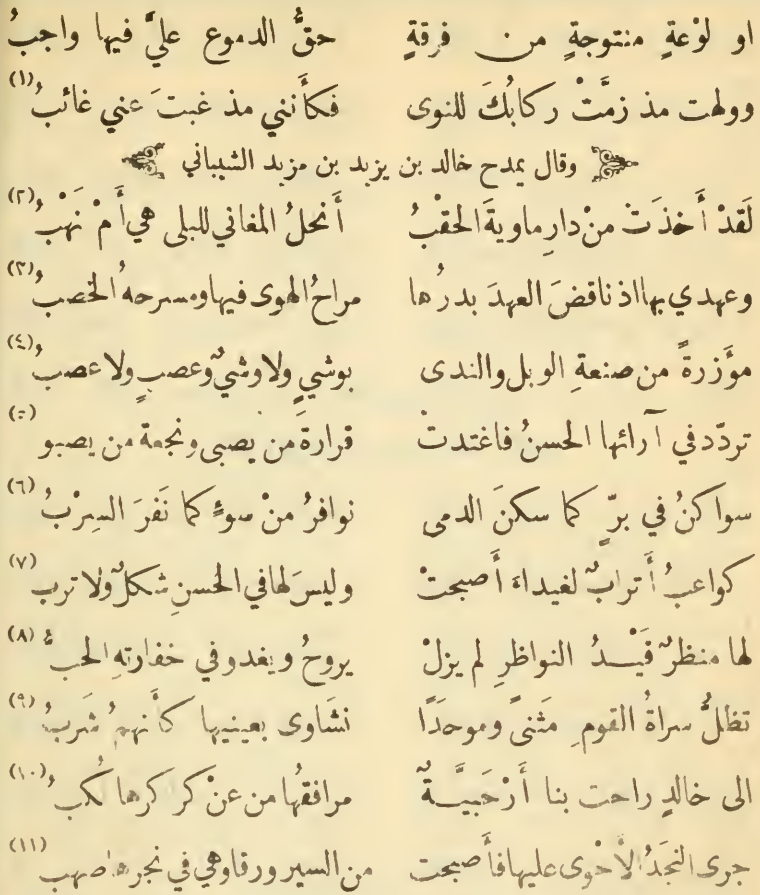 او لوْعةٍ منتوجةٍ من فرقةٍ حقُّ الدموع عليَّ فيها واجبُ
وولهت مذ زمَّتْ ركابُكَ للنوى فكأنني مذ غبتَ عني غائبُ (١)
وقال يمدح خالد بن يزيد بن مزيد الشيباني
لَقدْ أَخذَتْ منْ دارِ ماويةَ الحقْبُ أَنحلُ المغاني للبلى هي أَمْ نَهْبُ (٢)
وعهدي بها اذ ناقضَ العهدَ بدرُها مراحُ الهوى فيها ومسرحهُ الخصبُ (٣)
مؤَزرةً من صنعةِ الوبل والندى بوشيٍ ولا وشيٌ وعصبٍ ولا عصبُ (٤)
تردّد في آرائها الحسنُ فاغتدتْ قرارةَ من يصبى ونجعة من يصبو (٥)
سواكنُ في برّ كما سكنَ الدمى نوافرُ منْ سوءٍ كما نَفرَ السِرْبُ (٦)
كواعبُ أَترابٌ لغيداءَ أَصبحتْ وليسَ لها في الحسنِ شكلٌ ولا ترب (٧)
لها منظرٌ قيْدُ النواظرِ لم يزلْ يروحُ ويغدو في خفارتهِ الحبُّ (٨)
تظلُّ سراةُ القومِ مثنىً وموحدًا نشَاوى بعينيها كأَنهمُ شَربُ (٩)
الى خالدٍ راحت بنا أَرْحَبيَّةٌ مرافقُها من عنْ كر كرها نكب (١٠)
جرى النجَدُ الأَحْوى عليها فأَصبحت من السير ورقا وهي في نجرها صهب (١١)